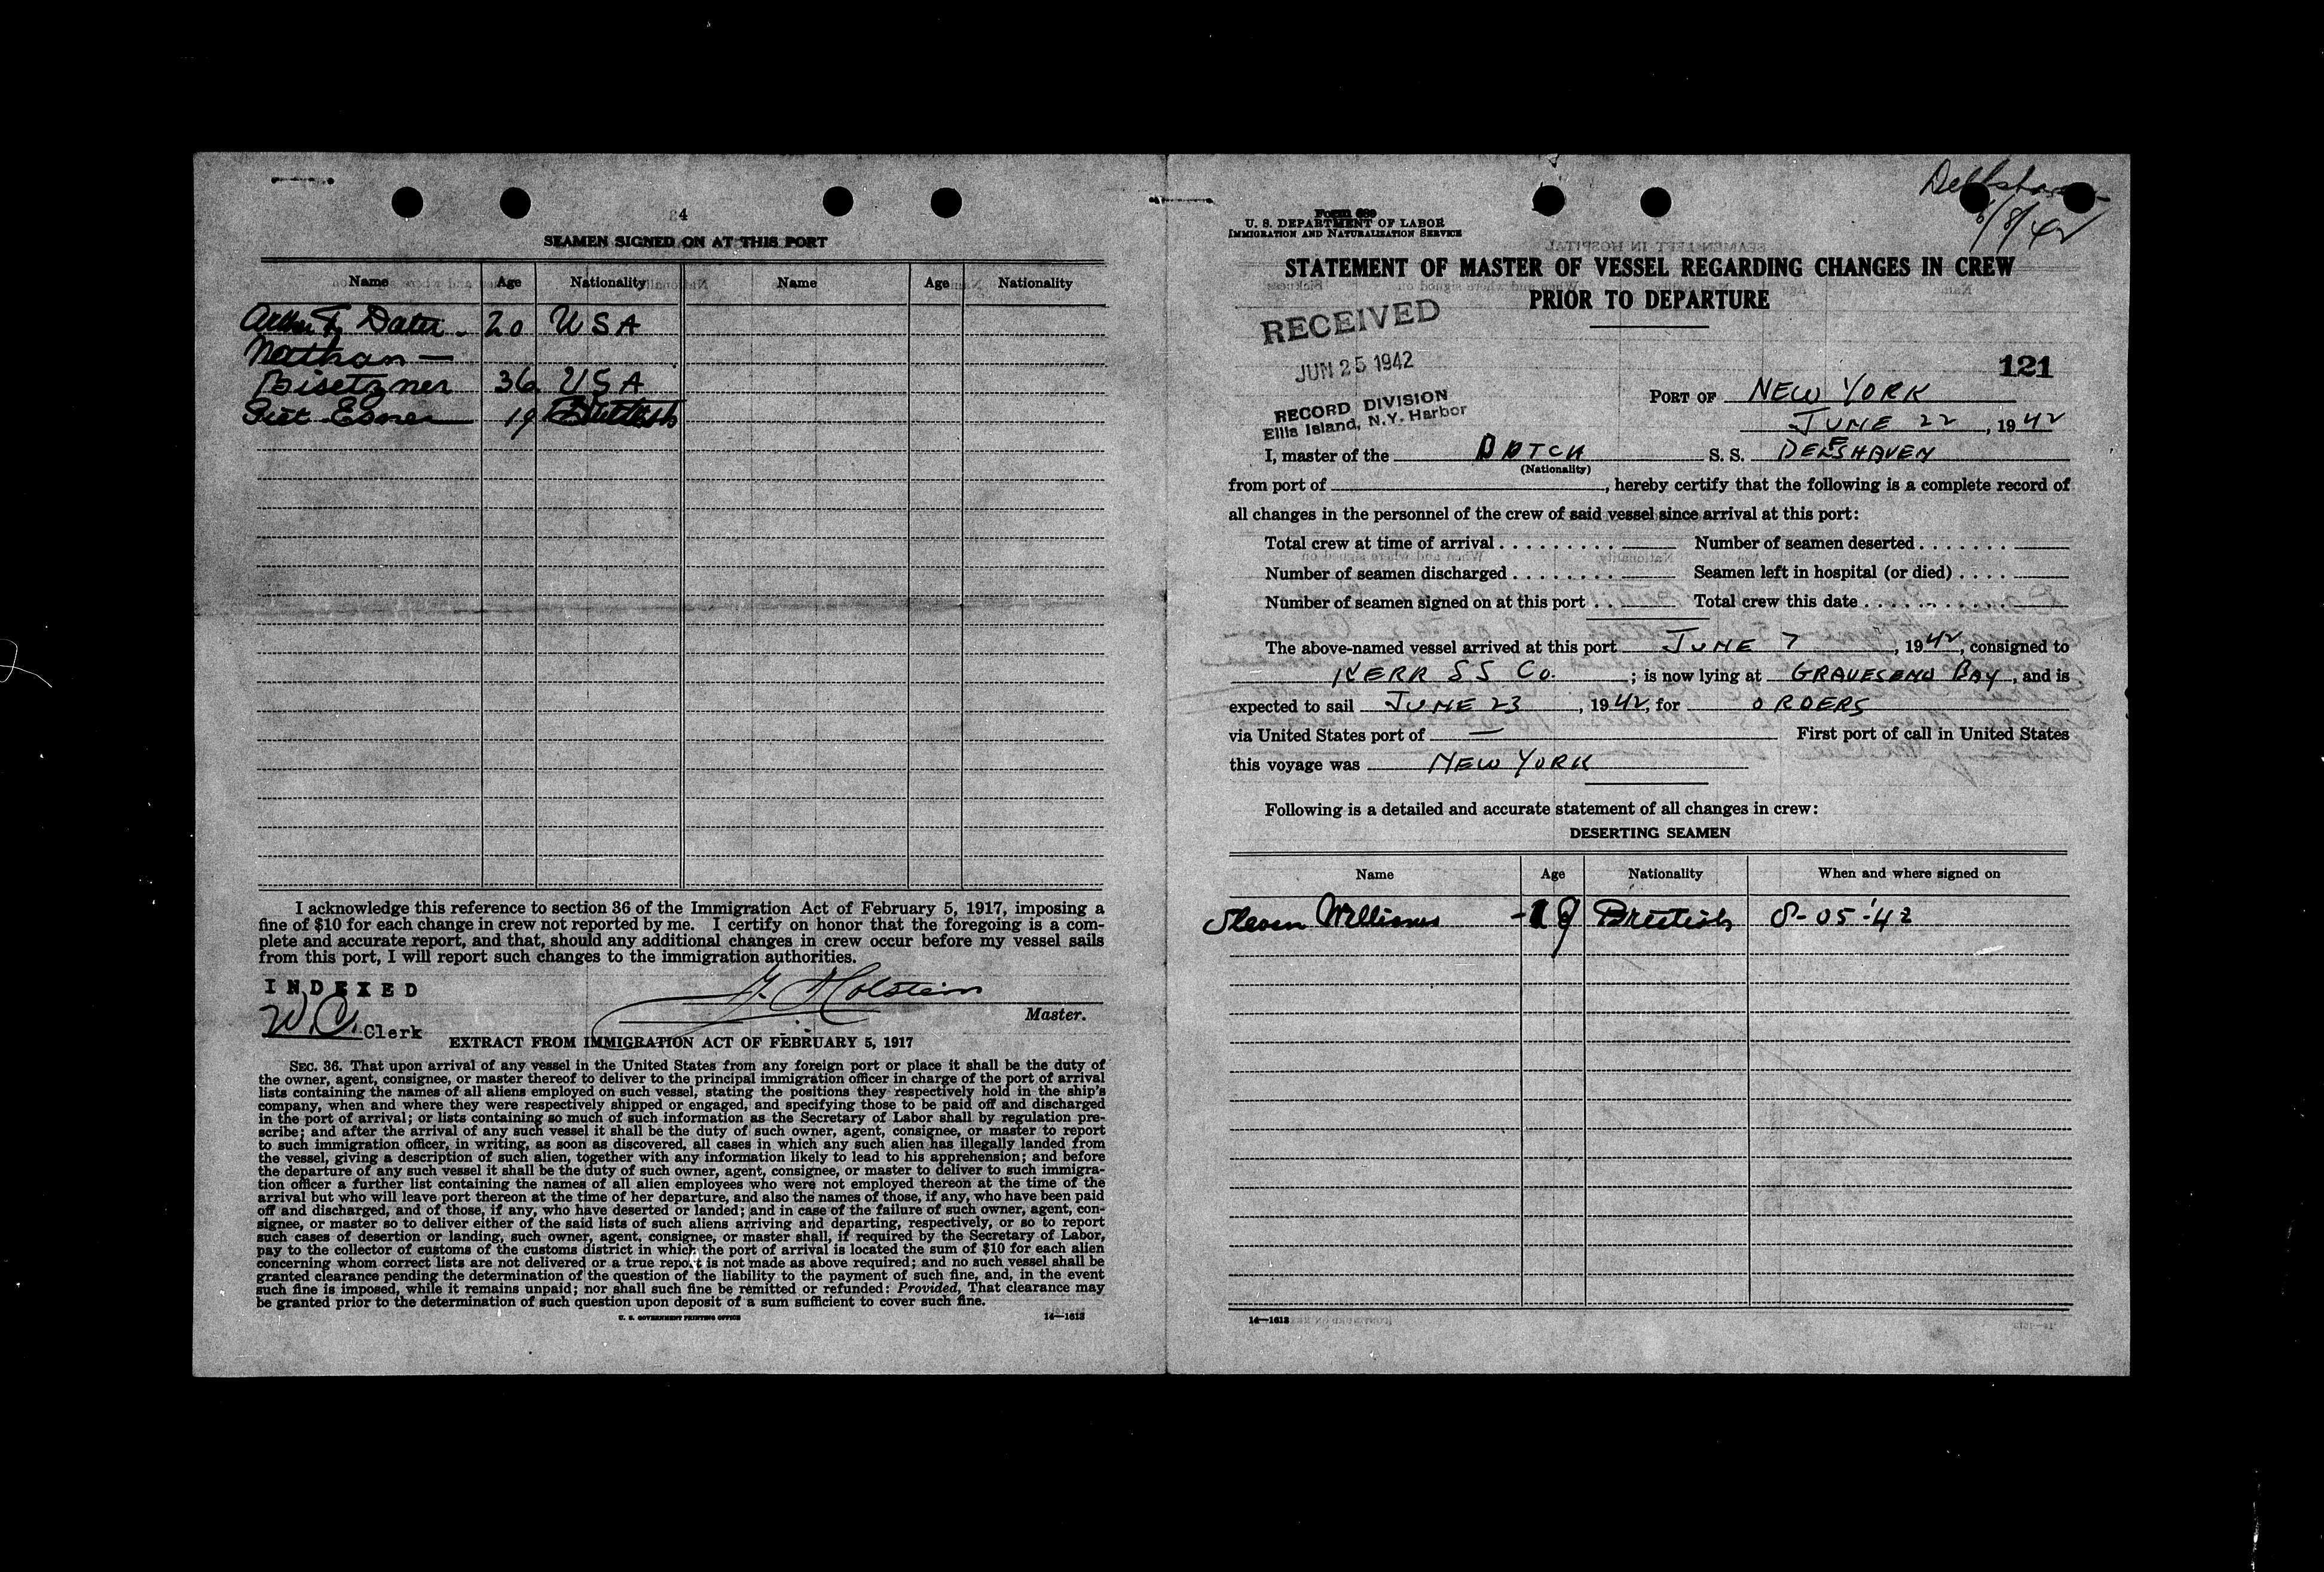 4
SEAMEN SIGNED ON AT THIS PORT
Name Age Nationality Name Age Nationality
Dater 20 USA
Nathan —
Bisetzner 36 USA
19 British
I acknowledge this reference to section 36 of the Immigration Act of February 5, 1917, imposing a
fine of $10 for each change in crew not reported by me. I certify on honor that the foregoing is a com-
plete and accurate report, and that, should any additional changes in crew occur before my vessel sails
from this port, I will report such changes to the immigration authorities.
INDEXED
W.C. Clerk
Holstein
Master.
EXTRACT FROM IMMIGRATION ACT OF FEBRUARY 5, 1917
SEC. 36. That upon arrival of any vessel in the United States from any foreign port or place it shall be the duty of
the owner, agent, consignee, or master thereof to deliver to the principal immigration officer in charge of the port of arrival
lists containing the names of all aliens employed on such vessel, stating the positions they respectively hold in the ship's
company, when and where they were respectively shipped or engaged, and specifying those to be paid off and discharged
in the port of arrival; or lists containing so much of such information as the Secretary of Labor shall by regulation pre-
scribe; and after the arrival of any such vessel it shall be the duty of such owner, agent, consignee, or master to report
to such immigration officer, in writing, as soon as discovered, all cases in which any such alien has illegally landed from
the vessel, giving a description of such alien, together with any information likely to lead to his apprehension; and before
the departure of any such vessel it shall be the duty of such owner, agent, consignee, or master to deliver to such immigra-
tion officer a further list containing the names of all alien employees who were not employed thereon at the time of the
arrival but who will leave port thereon at the time of her departure, and also the names of those, if any, who have been paid
off and discharged, and of those, if any, who have deserted or landed; and in case of the failure of such owner, agent, con-
signee, or master so to deliver either of the said lists of such aliens arriving and departing, respectively, or so to report
such cases of desertion or landing, such owner, agent, consignee, or master shall, if required by the Secretary of Labor,
pay to the collector of customs of the customs district in which the port of arrival is located the sum of $10 for each alien
concerning whom correct lists are not delivered or a true report is not made as above required; and no such vessel shall be
granted clearance pending the determination of the question of the liability to the payment of such fine, and, in the event
such fine is imposed, while it remains unpaid; nor shall such fine be remitted or refunded: Provided, That clearance may
be granted prior to the determination of such question upon deposit of a sum sufficient to cover such fine.
U. S. GOVERNMENT PRINTING OFFICE 14—1613
6/8/42
Form 680
U. S. DEPARTMENT OF LABOR
IMMIGRATION AND NATURALIZATION SERVICE
STATEMENT OF MASTER OF VESSEL REGARDING CHANGES IN CREW
PRIOR TO DEPARTURE
RECEIVED
JUN 25 1942
RECORD DIVISION
Ellis Island, N.Y. Harbor
121
PORT OF NEW YORK
JUNE 22, 1942
I, master of the DUTCH S. S. DELFSHAVEN
(Nationality)
from port of , hereby certify that the following is a complete record of
all changes in the personnel of the crew of said vessel since arrival at this port:
Total crew at time of arrival . . . . . . . . . Number of seamen deserted . . . . . . .
Number of seamen discharged . . . . . . . . Seamen left in hospital (or died) . . . .
Number of seamen signed on at this port . . Total crew this date . . . . . . . . . . .
The above-named vessel arrived at this port JUNE 7, 1942, consigned to
KERR SS Co. ; is now lying at GRAVESEND BAY, and is
expected to sail JUNE 23, 1942, for ORDERS
via United States port of — First port of call in United States
this voyage was NEW YORK
Following is a detailed and accurate statement of all changes in crew:
DESERTING SEAMEN
Name Age Nationality When and where signed on
Williams -19 British 8-05-'42
14—1613